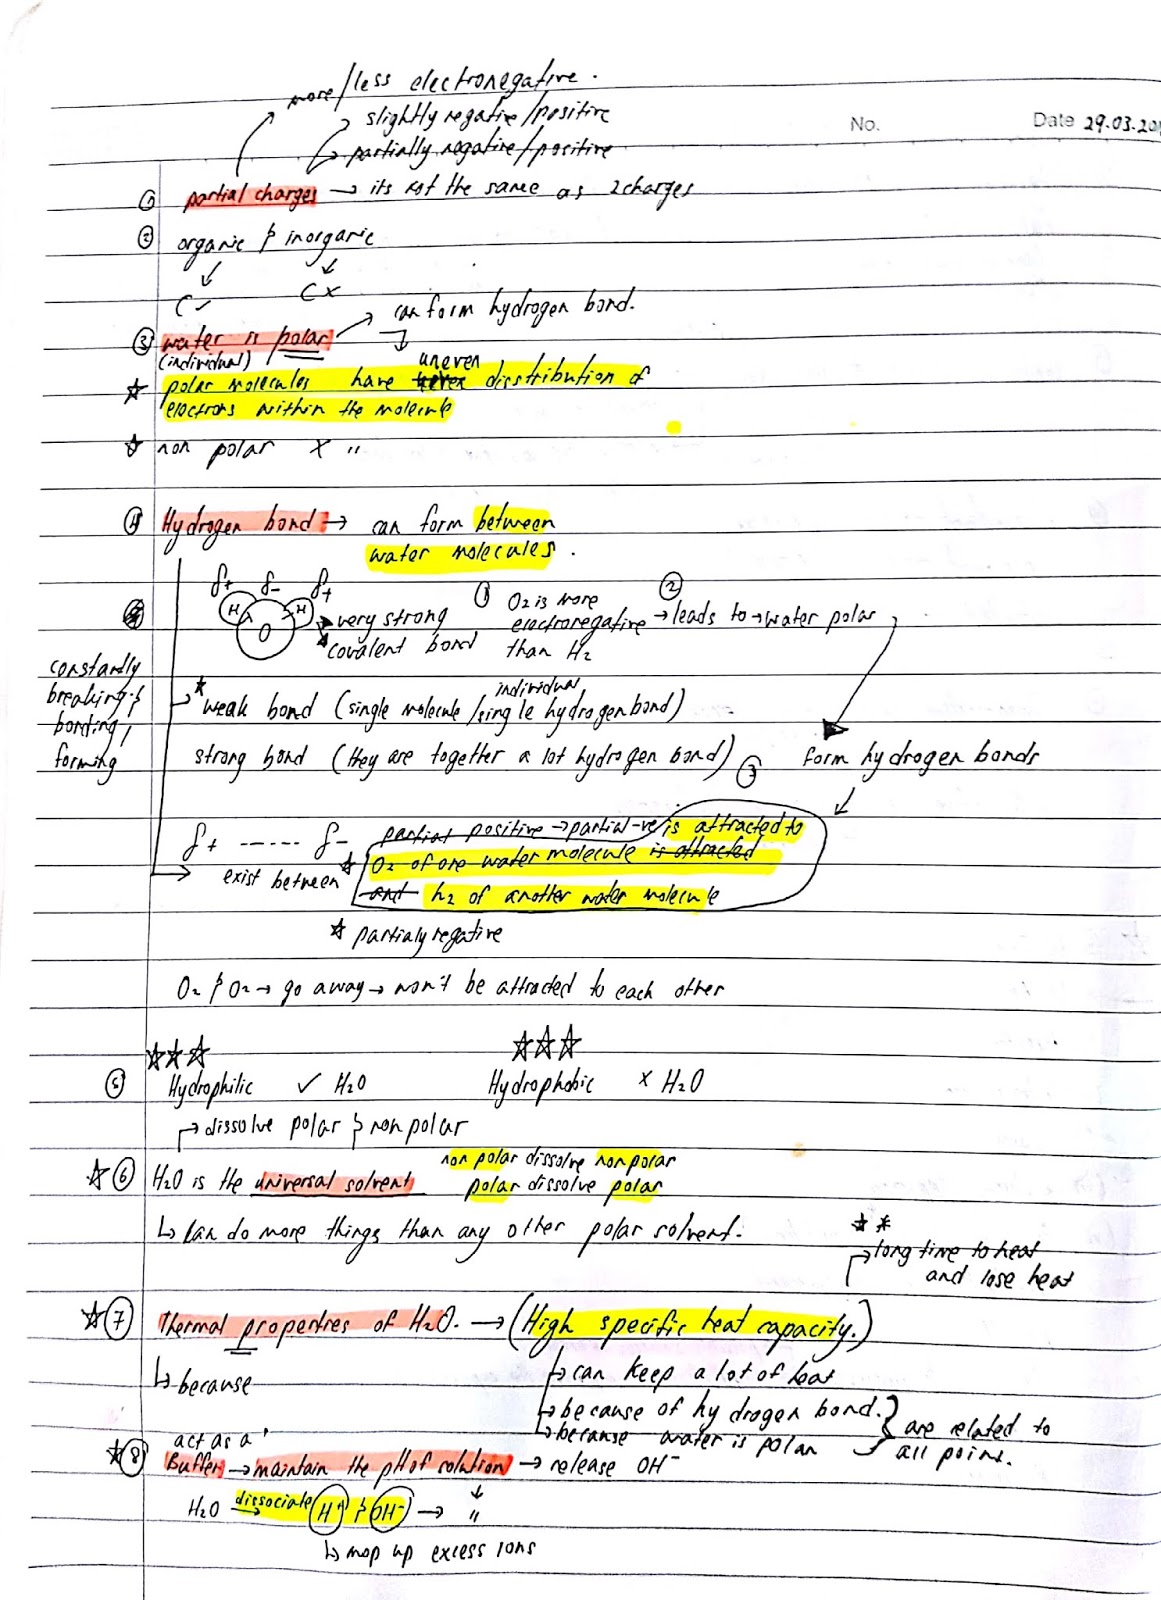 more/less electronegative.
slightly negative/positive
partially negative/positive
No.
Date 29.03.201
① partial charges → its not the same as 2 charges
② organic & inorganic
C✓ C×
③ water is polar → can form hydrogen bond.
(individual)
uneven
☆ polar molecules have disstribution of
electrons within the molecule
☆ non polar × "
④ Hydrogen bond → can form between
water molecules.
δ+ δ- δ+
H O H
very strong
covalent bond
① O₂ is more
electronegative
than H₂
② → leads to → water polar
constantly
breaking &
bonding/
forming
* weak bond (single molecule/single hydrogen bond)
individual
strong bond (they are together a lot hydrogen bond)
③ form hydrogen bonds
δ+ ------ δ-
exist between
partial positive → partial -ve is attracted to
* O₂ of one water molecule is attracted
and h₂ of another water molecule
☆ partialy negative
O₂ & O₂ → go away → won't be attracted to each other
☆☆☆ ☆☆☆
⑤ Hydrophilic ✓ H₂O Hydrophobic × H₂O
→ dissolve polar & non polar
☆⑥ H₂O is the universal solvent
non polar dissolve nonpolar
polar dissolve polar
↳ Can do more things than any other polar solvent.
★★
→ long time to heat
and lose heat
☆⑦ Thermal properties of H₂O. → (High specific heat capacity.)
↳ because
→ can keep a lot of heat
→ because of hydrogen bond.
→ because water is polar
are related to
all point.
act as a
★⑧ Buffer → maintain the pH of solution → release OH⁻
H₂O dissociate → H⁺ & OH⁻ → "
↳ mop up excess ions